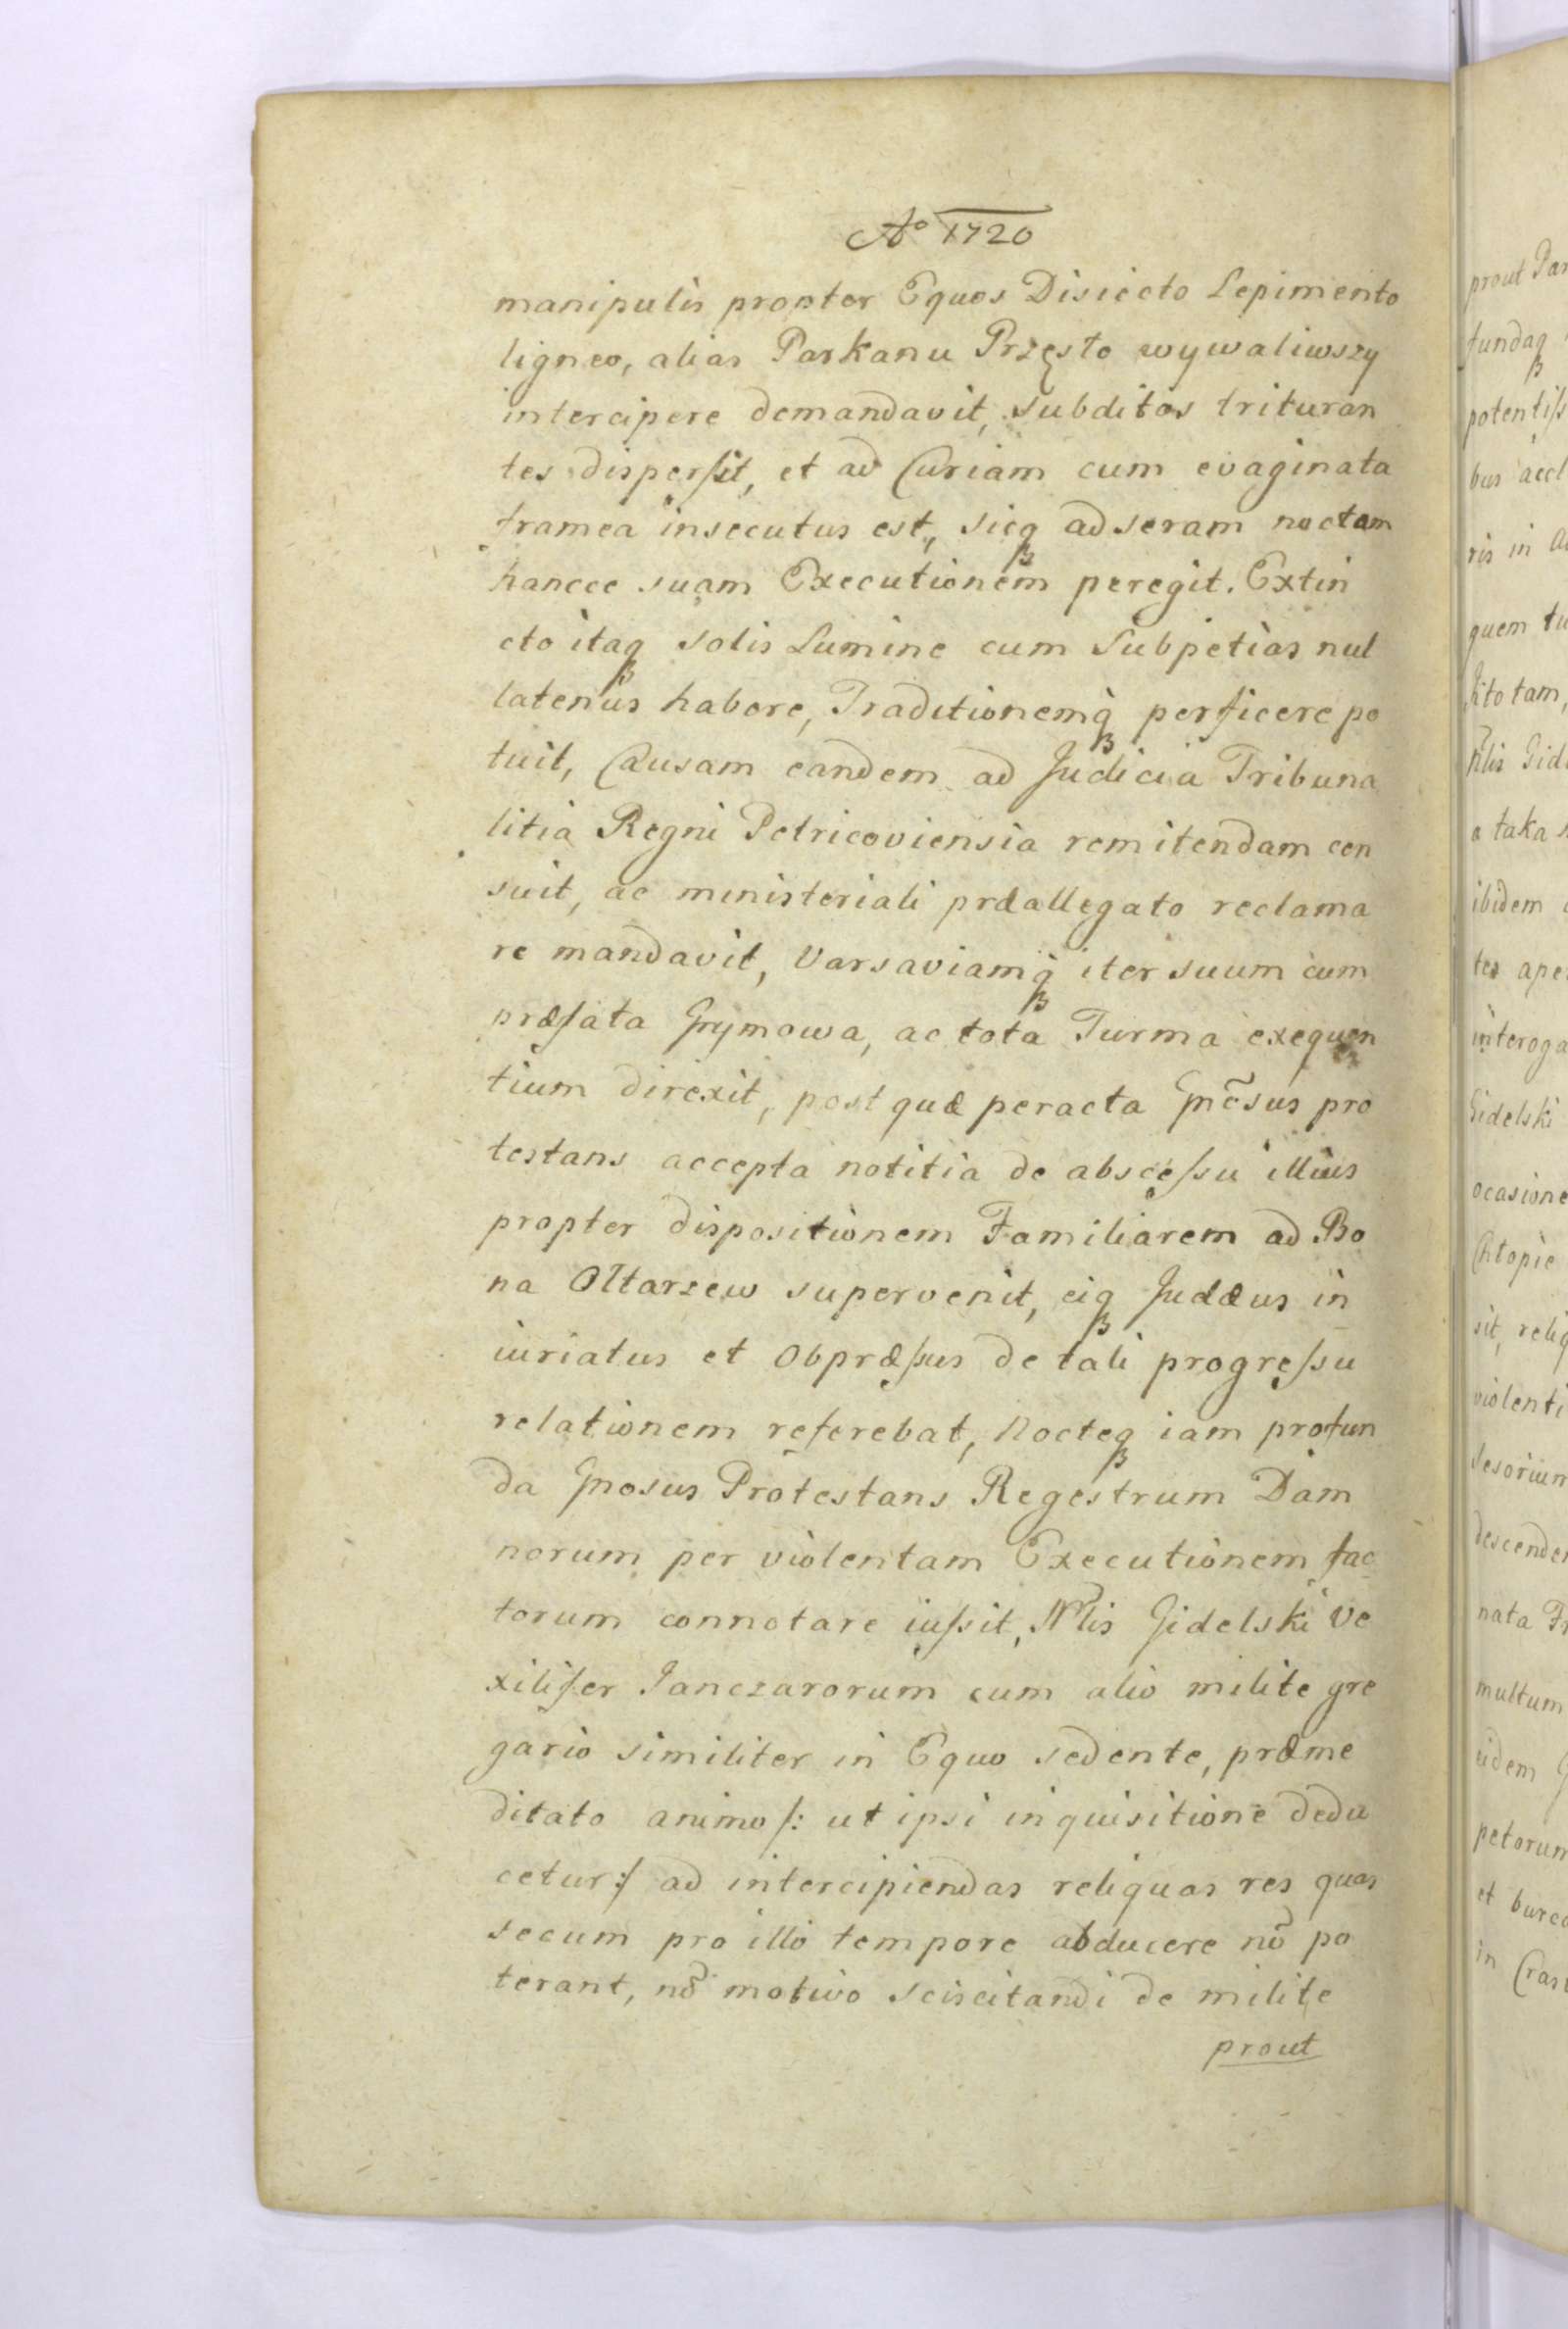 Aº 1720
manipulis propter Equos Disiecto Sepimento
ligneo, alias Parkanu Przęsło wywaliwszy
intercipere demandavit, subditos trituran
tes dispersit, et ad Curiam cum evaginata
framea insecutus est, sicq₃ ad seram noctem
hancce suam Executionem peregit. Extin
cto itaq₃ solis Lumine cum Subpetias nul
latenùs habere, Traditionemq₃ perficere po
tuit, Causam eandem ad Judicia Tribuna
litia Regni Petricoviensia remitendam cen
suit, ac ministeriali præallegato reclama
re mandavit, Varsaviamq₃ iter suum cum
præfata Grymowa, ac tota Turma exequen
tium direxit, post quæ peracta Gñcsus pro
testans accepta notitia de abscessu illius
propter dispositionem Familiarem ad Bo
na Ołtarzew supervenit, eiq₃ Judæus in
iuriatus et Obpræssus de tali progressu
relationem referebat, Nocteq₃ iam profun
da Gnosus Protestans Regestrum Dam
norum per violentam Executionem fac
torum connotare iussit, Nlis Gidelski Ve
xilifer Janczarorum cum alio milite gre
gario similiter in Equo sedente, præme
ditato animo /: ut ipsi inquisitione dedu
cetur :/ ad intercipiendas reliquas res quas
secum pro illo tempore abducere nõ po
terant, nõ motivo sciscitandi de milite
prout
prout Par
fundaq₃
potentiss
bus accl
ris in
quem tu
tam,
Nlis Gid
a taka
ibidem
tes ape
interoga
Gidelski
ocasione
Chłopie
sit, reliq
violenti
sesorium
descende
nata Fr
multum
eidem
petorum
et
in Cras